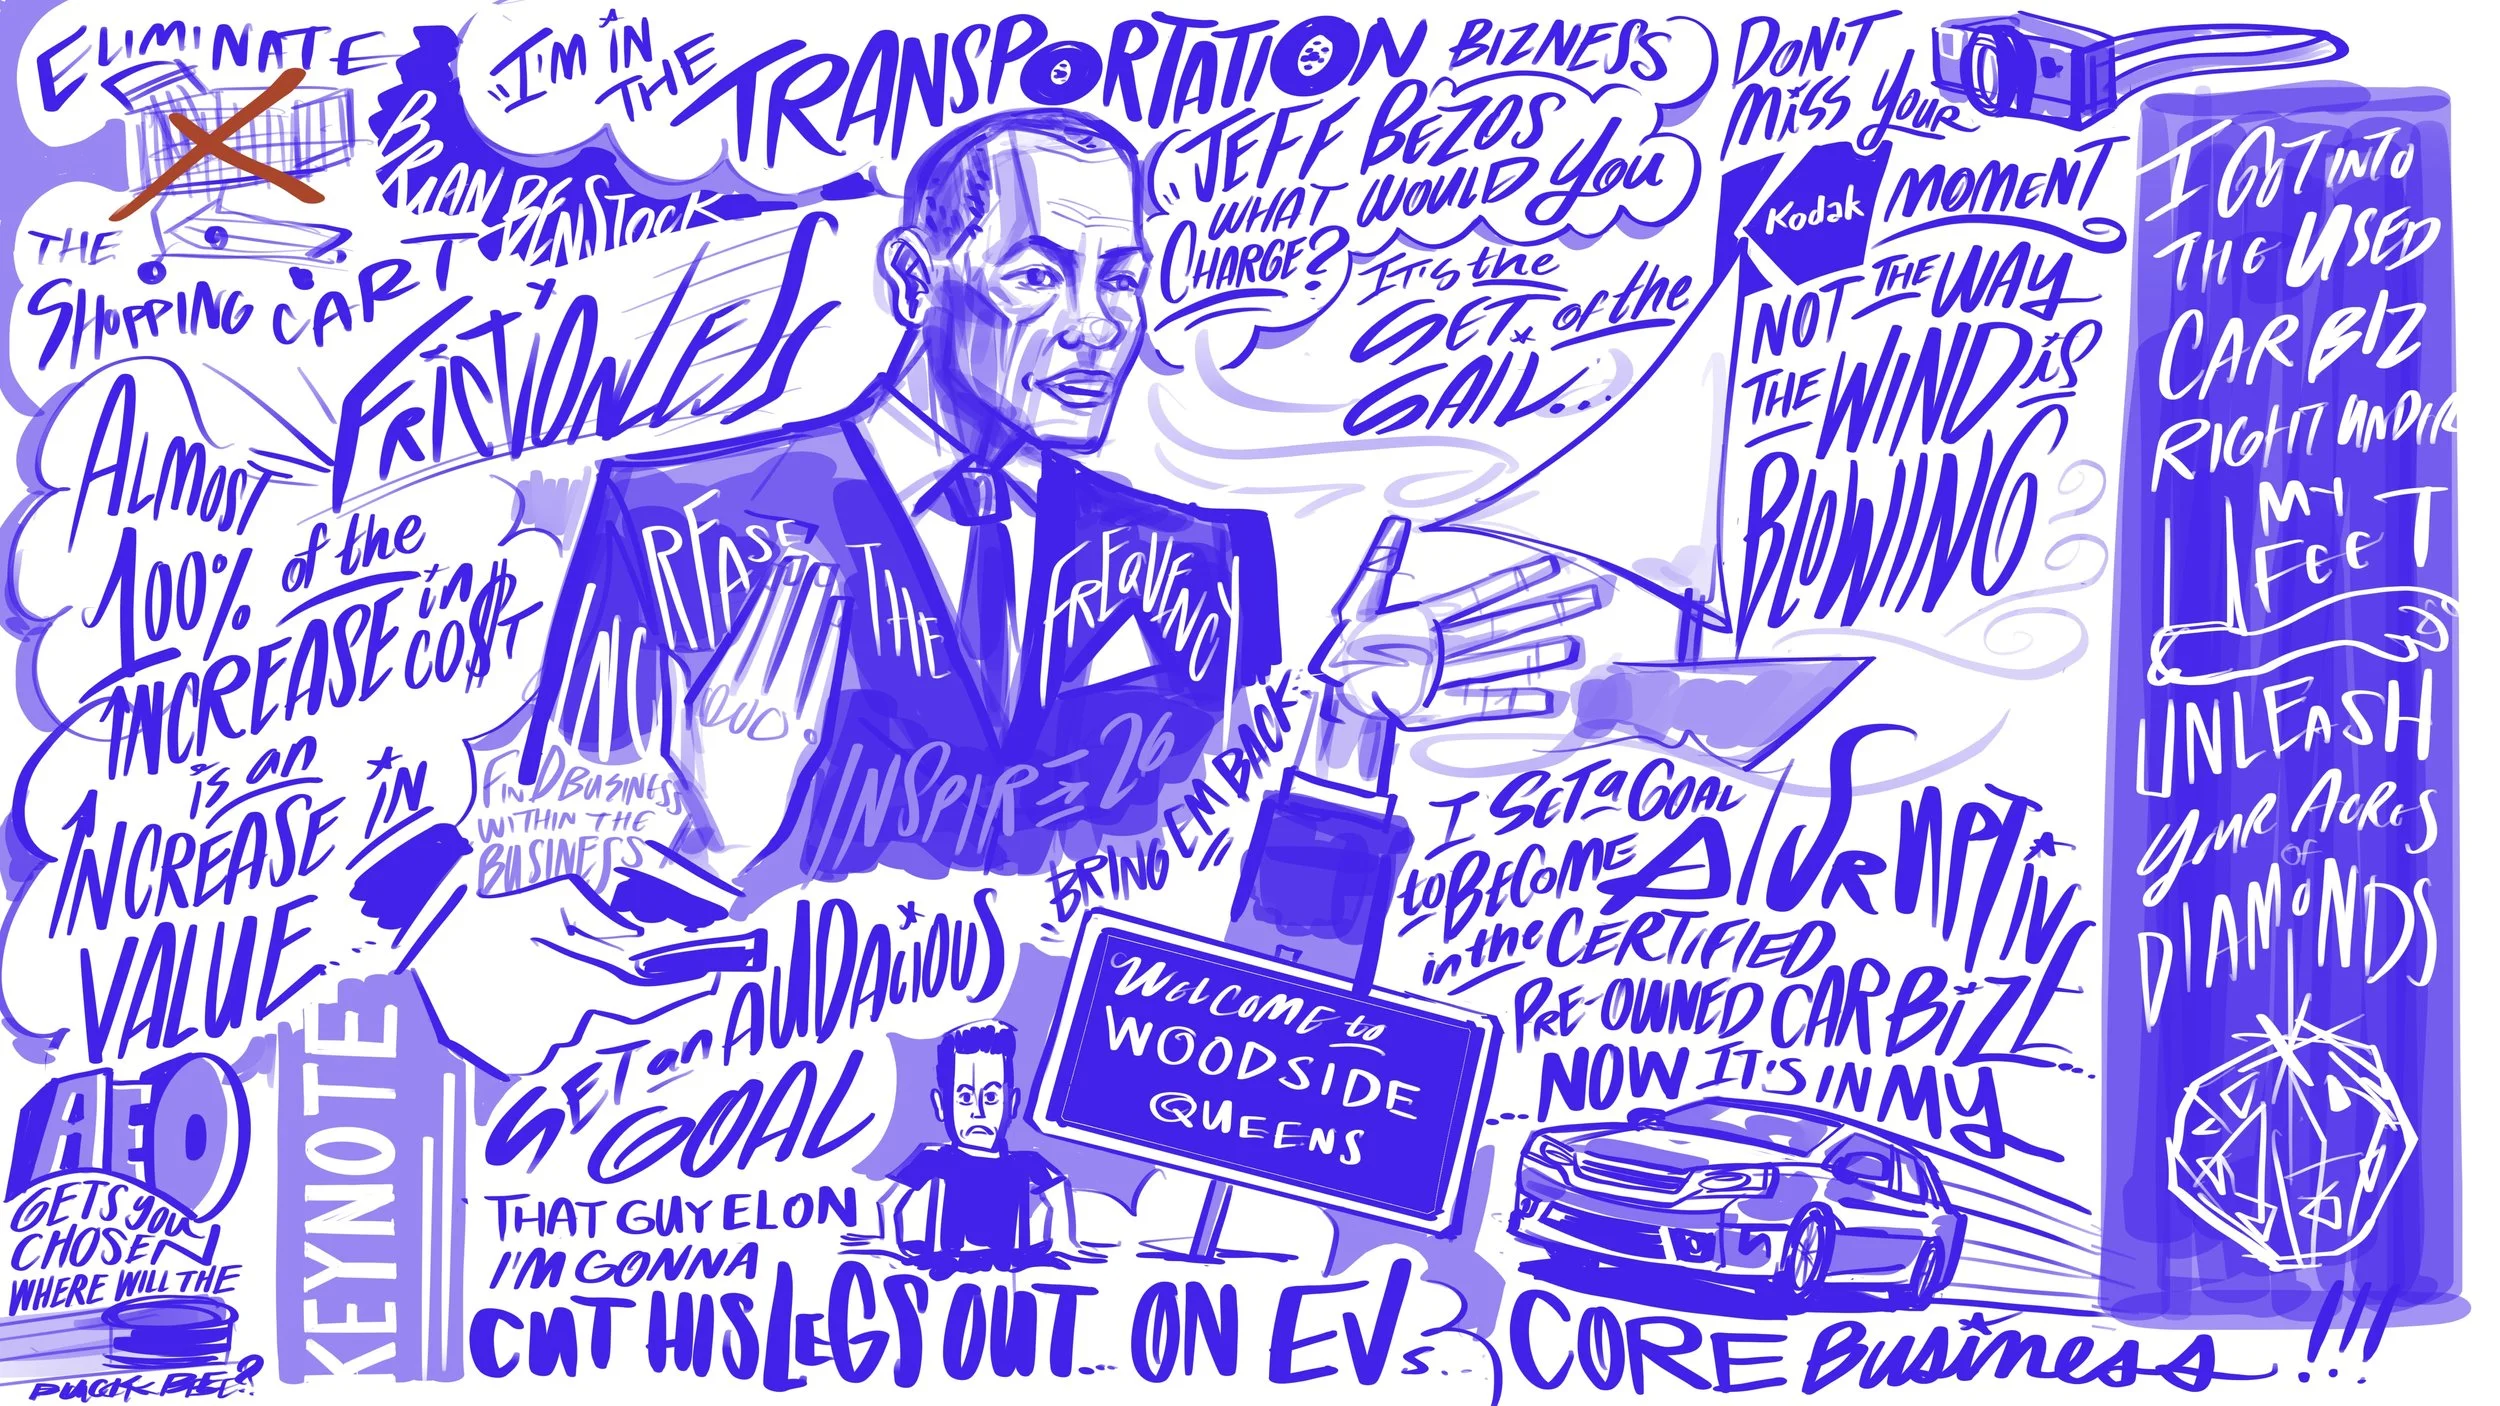 ELIMINATE
THE
SHOPPING CART
BRIAN BENSTOCK
"I'M IN
THE
TRANSPORTATION
BIZNESS
"JEFF BEZOS
WHAT WOULD YOU
CHARGE?
IT'S the
SET of the
SAIL...
NOT THE WAY
THE WIND is
BLOWING
DON'T
MISS YOUR
Kodak
MOMENT
I GOT INTO
THE USED
CAR BIZ
RIGHT UNDER
MY
FEET
UNLEASH
YOUR ACRES
OF
DIAMONDS
FRICTIONLESS
ALMOST
100% of the
INCREASE in
CO$T
is an
INCREASE IN
VALUE...
INCREASE THE
FREQUENCY
QUO.
INSPIRE 26
FIND BUSINESS
WITHIN THE
BUSINESS
BRING EM BACK
WELCOME to
WOODSIDE
QUEENS
I SET a GOAL
to BECOME
in the CERTIFIED
PRE-OWNED CAR BIZ
NOW IT'S IN MY
CORE BUSINESS...!!!
SET an AUDACIOUS
GOAL
THAT GUY ELON
I'M GONNA
CUT HIS LEGS OUT... ON EVs...
AEO
GETS YOU
CHOSEN
WHERE WILL THE
PUCK BEE?
KEYNOTE